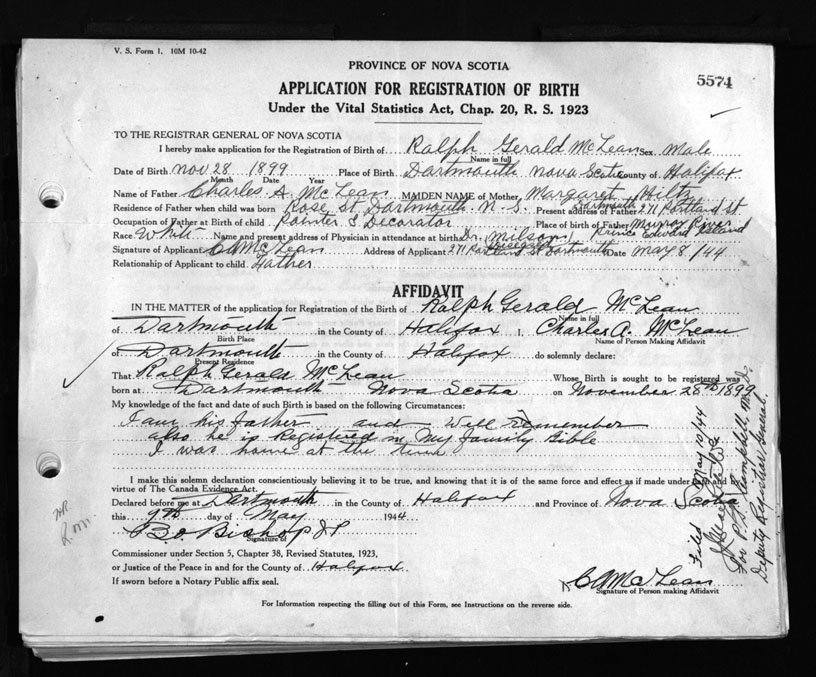 V. S. Form 1. 10M 10-42
PROVINCE OF NOVA SCOTIA
5574
APPLICATION FOR REGISTRATION OF BIRTH
Under the Vital Statistics Act, Chap. 20, R. S. 1923
TO THE REGISTRAR GENERAL OF NOVA SCOTIA
I hereby make application for the Registration of Birth of Ralph Gerald McLean Sex Male
Name in full
Date of Birth Nov 28 1899 Place of Birth Dartmouth Nova Scotia County of Halifax
Month Date Year
Name of Father Charles A. McLean MAIDEN NAME of Mother Margaret Hiltz
Residence of Father when child was born Rose St Dartmouth. N. S. Present address of Father 271 Portland St Dartmouth
Occupation of Father at Birth of child Painter & Decorator Place of birth of Father Murray River Prince Edward Island
Race White Name and present address of Physician in attendance at birth Dr. Milson Deceased
Signature of Applicant C A McLean Address of Applicant 271 Portland St Dartmouth Date May 8/44
Relationship of Applicant to child Father
AFFIDAVIT
IN THE MATTER of the application for Registration of the Birth of Ralph Gerald McLean
Name in full
of Dartmouth in the County of Halifax I, Charles A. McLean
Birth Place Name of Person Making Affidavit
of Dartmouth in the County of Halifax do solemnly declare:
Present Residence
That Ralph Gerald McLean Whose Birth is sought to be registered was
born at Dartmouth Nova Scotia on November 28th 1899
My knowledge of the fact and date of such Birth is based on the following Circumstances:
I am his father and Will remember
also he is Registered in My family Bible
I was home at the time
I make this solemn declaration conscientiously believing it to be true, and knowing that it is of the same force and effect as if made under oath and by
virtue of The Canada Evidence Act.
Declared before me at Dartmouth in the County of Halifax and Province of Nova Scotia
this 9th day of May 1944
B O Bishop J P
Signature of
Commissioner under Section 5, Chapter 38, Revised Statutes, 1923,
or Justice of the Peace in and for the County of Halifax
If sworn before a Notary Public affix seal.
C A McLean
Signature of Person making Affidavit
For Information respecting the filling out of this Form, see Instructions on the reverse side.
Filed May 10/44
For P. S. Campbell, M.D.
Deputy Registrar General.